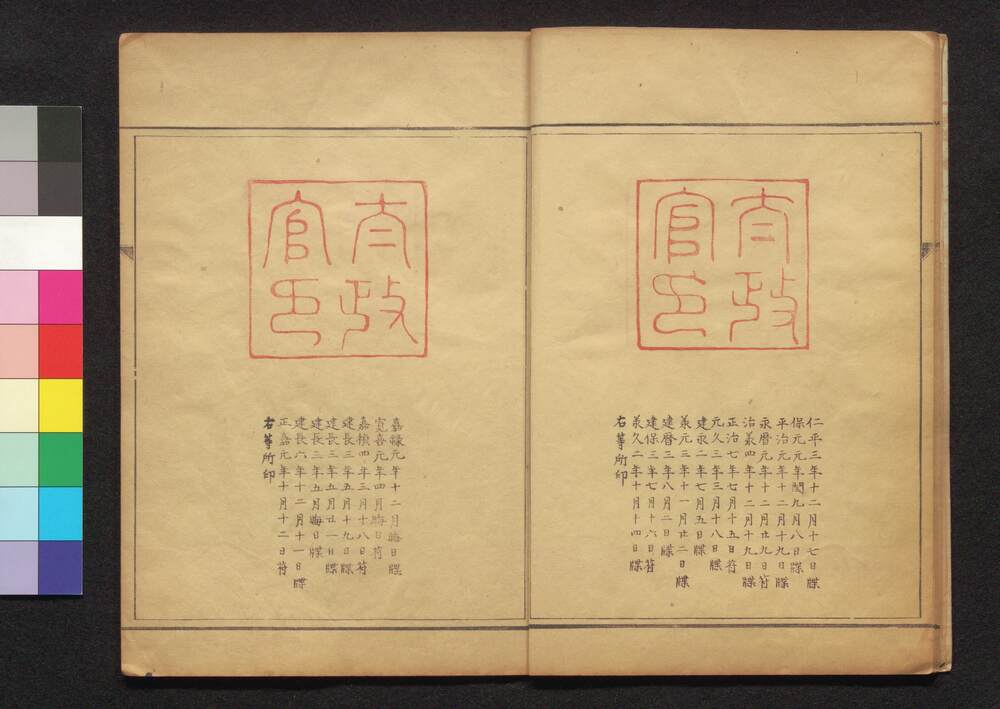 太政
官印
仁平三年十二月十七日牒
保元元年閏九月八日牒
平治元年十二月十九日牒
永曆元年十二月廿九日符
治承四年十二月十九日牒
正治七年七月十五日符
元久三年三月十八日牒
建永二年七月五日牒
承元三年十一月廿二日牒
建曆三年八月二日牒
建保三年七月十六日符
承久二年十月十四日牒
右等所印
太政
官印
嘉祿元年十二月晦日牒
寬喜元年四月晦日符
嘉禎四年三月十八日符
建長三年五月十九日牒
建長三年五月廿一日牒
建長三年五月晦日牒
建長六年十二月十一日牒
正嘉元年十月十二日符
右等所印